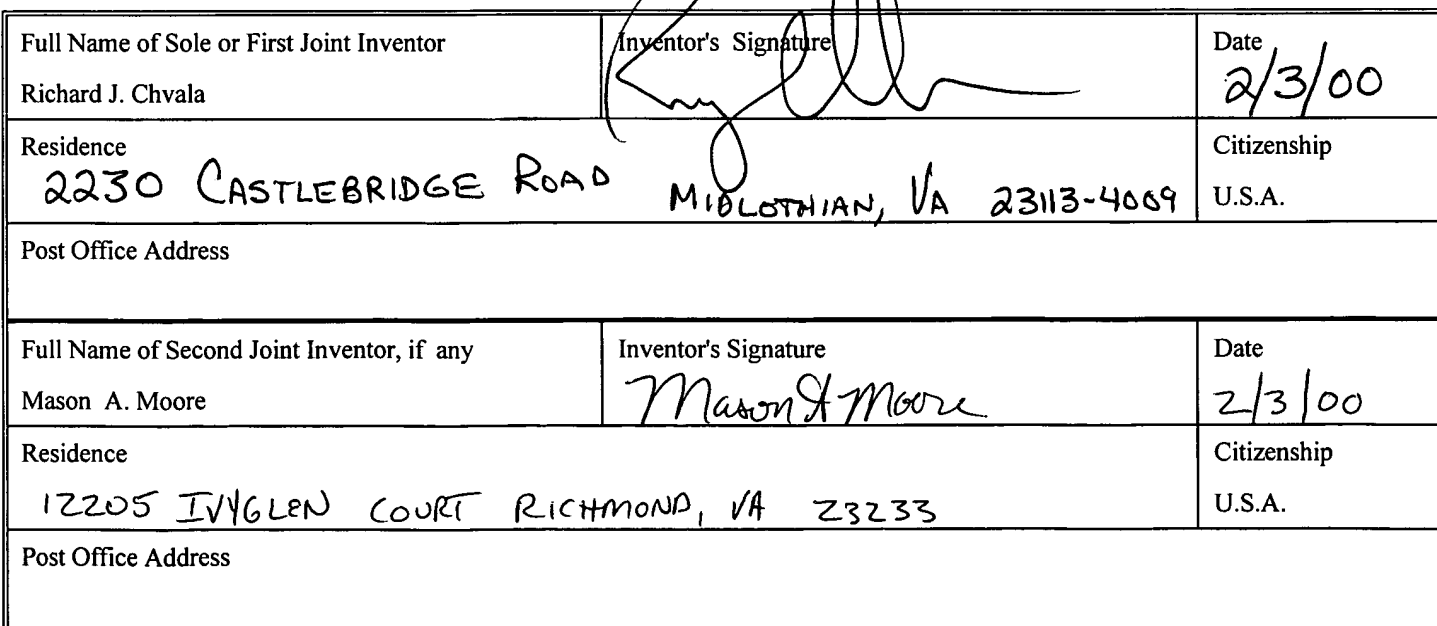 Full Name of Sole or First Joint Inventor
Richard J. Chvala
Inventor's Signature
Date
2/3/00
Residence
2230 CASTLEBRIDGE ROAD MIDLOTHIAN, VA 23113-4009
Citizenship
U.S.A.
Post Office Address
Full Name of Second Joint Inventor, if any
Mason A. Moore
Inventor's Signature
Mason A Moore
Date
2/3/00
Residence
12205 IVYGLEN COURT RICHMOND, VA 23233
Citizenship
U.S.A.
Post Office Address